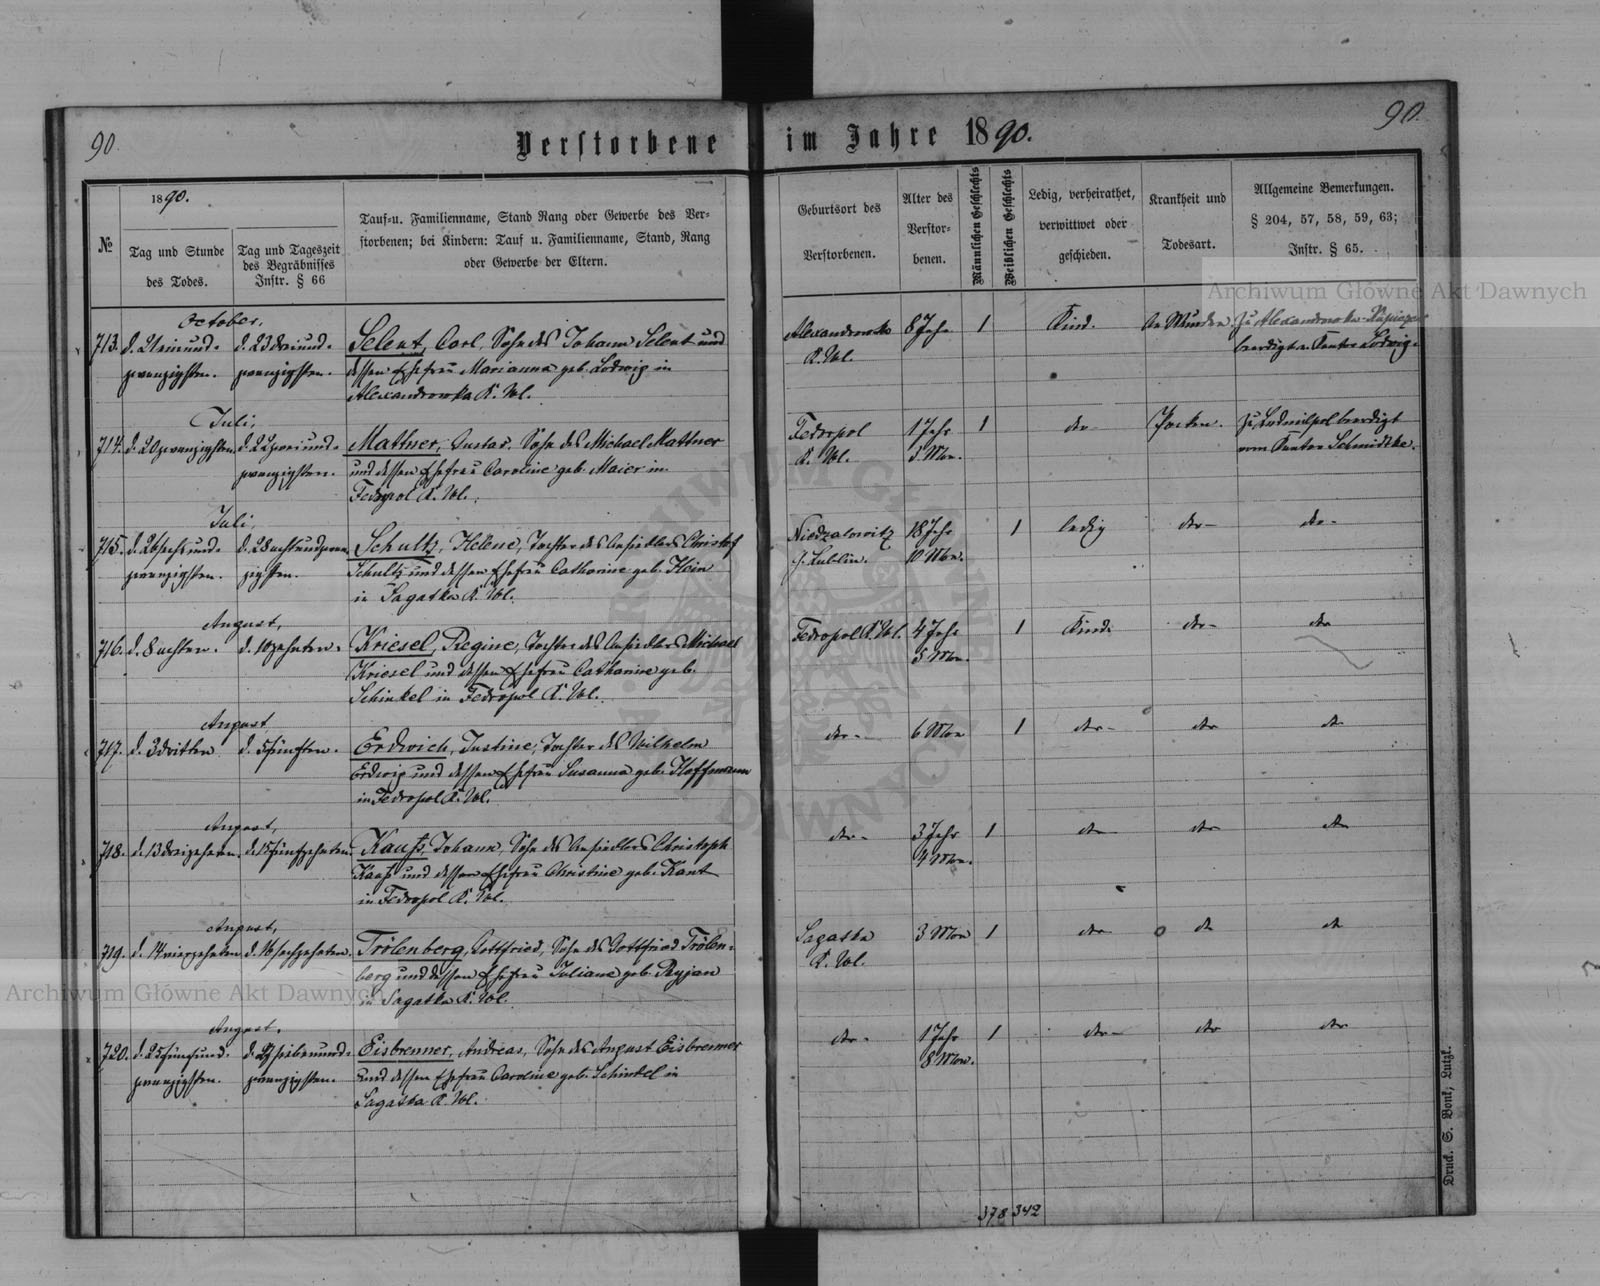 90.
90.
Verstorbene im Jahre 1890.
1890.
№
Tag und Stunde
des Todes.
Tag und Tageszeit
des Begräbnisses
Instr. § 66
Tauf- u. Familienname, Stand Rang oder Gewerbe des Ver-
storbenen; bei Kindern: Tauf u. Familienname, Stand, Rang
oder Gewerbe der Eltern.
Geburtsort des
Verstorbenen.
Alter des
Verstor-
benen.
Männlichen Geschlechts
Weiblichen Geschlechts
Ledig, verheirathet,
verwittwet oder
geschieden.
Krankheit und
Todesart.
Allgemeine Bemerkungen.
§ 204, 57, 58, 59, 63;
Instr. § 65.
Archiwum Główne Akt Dawnych
October,
713. d. 21 einund- d. 23 dreiund- Selent, Carl, Sohn des Johann Selent und
zwanzigsten. zwanzigsten. dessen Ehefrau Marianna geb. Ludwig in
Alexandrowka K. Wl.
Alexandrowka 8 Jahr 1 Kind. Zu Alexandrowka
K. Wl. beerdigt v. Kantor Ludwig.
Juli,
714. d. 20 zwanzigsten. d. 22 zweiund- Mattner, Gustav, Sohn des Michael Mattner
zwanzigsten. und dessen Ehefrau Caroline geb. Maier in
Fedopol K. Wl.
Fedopol 1 Jahr 1 do- Pocken. Zu Ludmilpol beerdigt
K. Wl. 5 Mon. vom Kantor Schmidtke.
Juli,
715. d. 26 sechsund- d. 28 achtundzwan- Schultz, Helene, Tochter des Ansiedlers Christof
zwanzigsten. zigsten. Schultz und dessen Ehefrau Catharine geb. Klein
in Sagatka K. Wl.
18 Jahr 1 ledig do- do-
G. Lublin. 10 Mon.
August,
716. d. 8 achten. d. 10 zehnten. Kriesel, Regine, Tochter des Ansiedlers Michael
Kriesel und dessen Ehefrau Catharine geb.
Schinkel in Fedropol K. Wl.
Fedropol K. Wl. 4 Jahr 1 Kind. do- do
5 Mon.
August
717. d. 3 dritten d. 5 fünften. Erdwich, Justine, Tochter des Wilhelm
Erdwig und dessen Ehefrau Susanna geb. Hoffmann
in Fedropol K. Wl.
do- 6 Mon 1 do- do do
August,
718. d. 13 dreizehnten. d. 15 fünfzehnten. Kauss, Johann, Sohn des Ansiedlers Christoph
und dessen Ehefrau Christine geb. Kant
in Fedropol K. Wl.
do- 3 Jahr 1 do do do
4 Mon.
August,
719. d. 14 vierzehnten d. 16 sechzehnten. Trölenberg, Gottfried, Sohn des Gottfried Trölen-
berg und dessen Ehefrau Juliane geb. Ryjan
in Sagatka K. Wl.
Sagatka 3 Mon 1 do do do
K. Wl.
August,
720. d. 25 fünfund- d. 27 siebenund- Eisbrenner, Andreas, Sohn des August Eisbrenner
zwanzigsten. zwanzigsten. und dessen Ehefrau Caroline geb. Schinkel in
Sagatka K. Wl.
do- 1 Jahr 1 do- do do
8 Mon.
378 342
Druck. S. Bonk, Lutzk.
Archiwum Główne Akt Dawnych